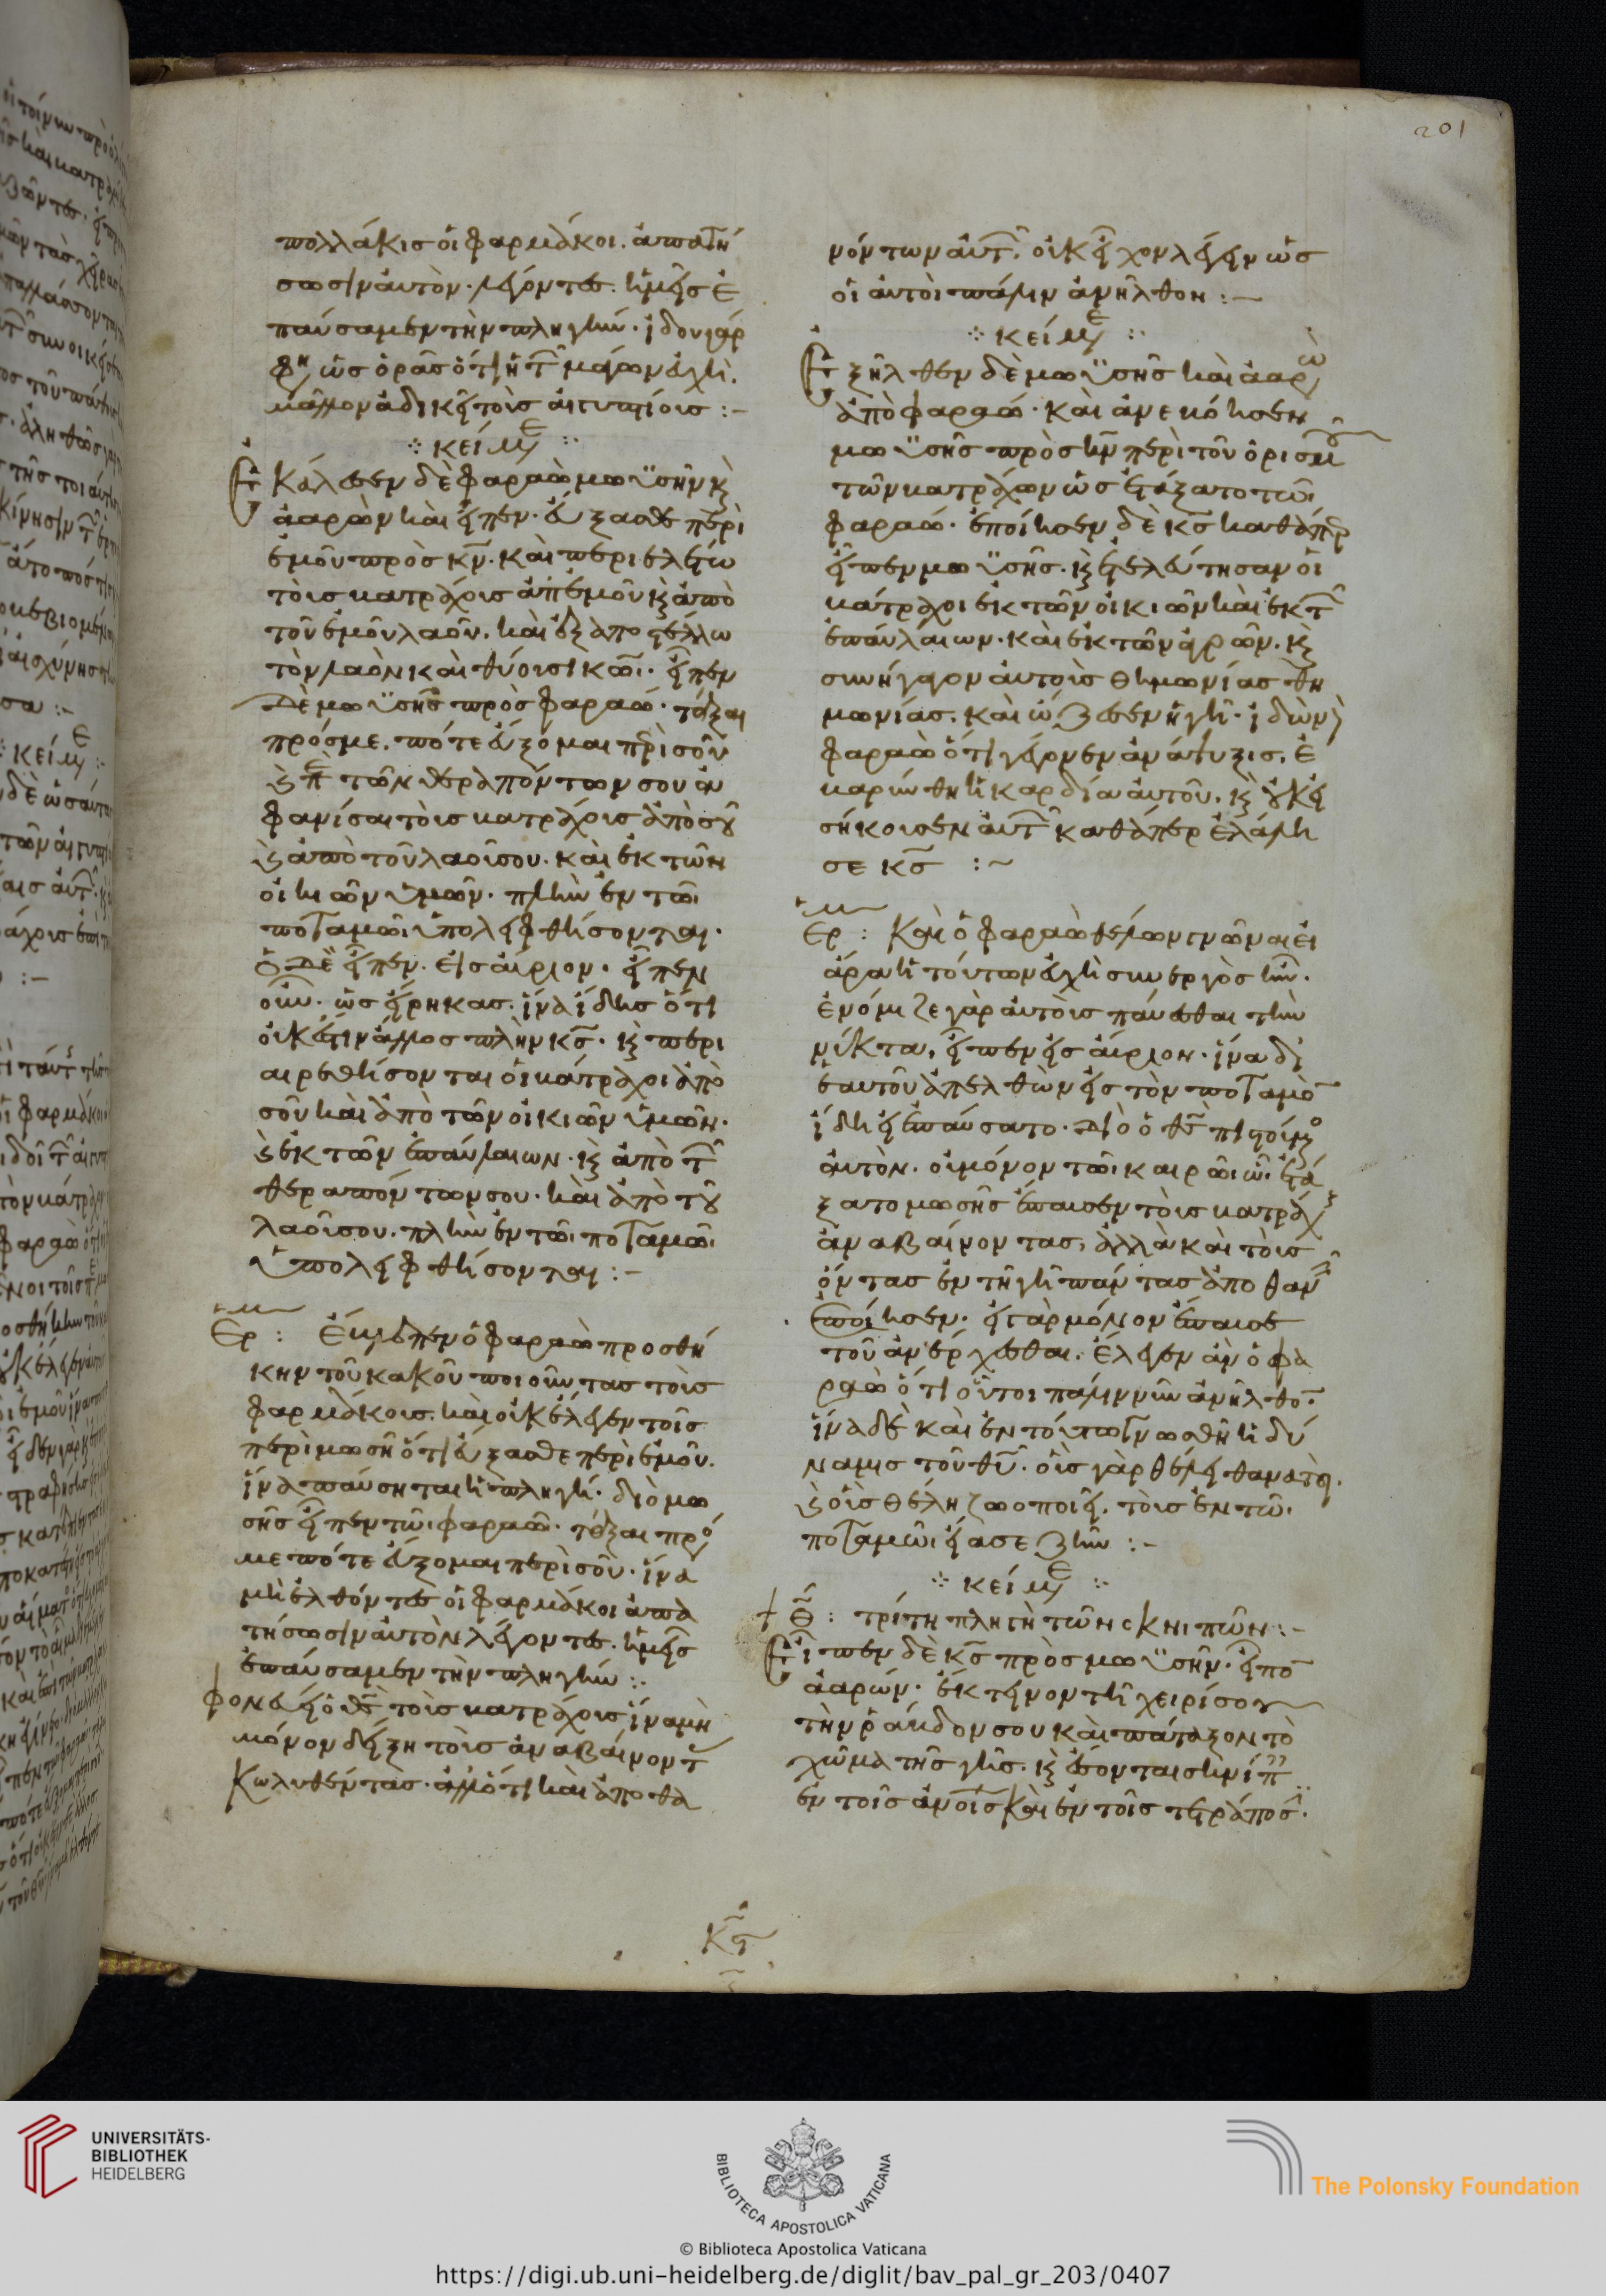 201
πολλάκις οἱ φαρμακοὶ ἀπατή
σωσιν αὐτὸν λέγοντες. ἡμεῖς ἐ
παύσαμεν τὴν πληγήν. ἰδοὺ γὰρ
φη ὡς ὁρᾶς ὅτι ἡ τ μάγων εὐχὴ.
μᾶλλον ἀδικεῖ τοὺς αἰγυπτίους :-
κείμε
Εκάλεσεν δὲ φαραὼ μωϋσῆν κ
ἀαρὼν καὶ εἶπεν. εὔξασθε περὶ
ἐμοῦ πρὸς κν. καὶ περιελέτω
τοὺς βατράχους ἀπ' ἐμοῦ κ ἀπὸ
τοῦ ἐμοῦ λαοῦ. καὶ ἐξαποστέλλω
τὸν λαὸν καὶ θύσουσι κω. εἶπεν
δὲ μωϋσῆς πρὸς φαραώ. τάξαι
πρός με. πότε εὔξομαι περὶ σοῦ
κ πε τῶν θεραπόντων σου ἀ
φανίσαι τοὺς βατράχους ἀπὸ σοῦ
κ ἀπὸ τοῦ λαοῦ σου. καὶ ἐκ τῶν
οἰκιῶν ὑμῶν. πλὴν ἐν τῶι
ποταμῶι ὑπολειφθήσονται.
ὁ δὲ εἶπεν. εἰς αὔριον. εἶπεν
οὖν. ὡς εἴρηκας. ἵνα ἴδης ὅτι
οὐκ ἔστιν ἄλλος πλὴν κς. κ περι
αιρεθήσονται οἱ βάτραχοι ἀπὸ
σοῦ καὶ ἀπὸ τῶν οἰκιῶν ὑμῶν.
κ ἐκ τῶν ἐπαύλεων. κ ἀπὸ τ
θεραπόντων σου. καὶ ἀπὸ τοῦ
λαοῦ σου. πλὴν ἐν τῶι ποταμῶι
ὑπολειφθήσονται :-
Ερ : Ἔβλεπεν ὁ φαραὼ προσθή
κην τοῦ κακοῦ ποιοῦντας τοὺς
φαρμακούς. καὶ οὐκ ἔλεγεν τοῖς
περὶ μωσῆ ὅτι εὔξασθε περὶ ἐμοῦ.
ἵνα παύσηται ἡ πληγή. διὸ μω
σῆς εἶπεν τῶι φαραῶ. τάξαι πρό
με πότε εὔξομαι περὶ σοῦ. ἵνα
μὴ ἐλθόντες οἱ φαρμακοὶ ἀπα
τήσωσιν αὐτὸν λέγοντες. ἡμεῖς
ἐπαύσαμεν τὴν πληγήν :
φονεύει ὁ θς τοὺς βατράχους ἵνα μὴ
μόνον δείξη τοὺς ἀναβαίνοντ
κωλυθέντας. ἀλλ' ὅτι καὶ ἀποθα
νόντων αὐτ. οὐκ εἶχον λέγειν ὡς
οἱ αὐτοὶ πάλιν ἀνῆλθον :-
κείμε
Εξῆλθεν δὲ μωϋσῆς καὶ ἀαρὼ
ἀπὸ φαραώ. καὶ ἀνεβόησεν
μωϋσῆς πρὸς κν περὶ τοῦ ὁρισμ
τῶν βατράχων ὡς ἐτάξατο τῶι
φαραώ. ἐποίησεν δὲ κς καθάπερ
εἶπεν μωϋσῆς. κ ἐτελεύτησαν οἱ
βάτραχοι ἐκ τῶν οἰκιῶν καὶ ἐκ τ
ἐπαύλεων. καὶ ἐκ τῶν ἀγρῶν. κ
συνήγαγον αὐτοὺς θημωνίας θη
μωνίας. καὶ ὤζεσεν ἡ γῆ. ἰδὼν δ
φαραὼ ὅτι γέγονεν ἀνάψυξις. ἐ
βαρύνθη ἡ καρδία αὐτοῦ. κ οὐκ εἰ
σήκουσεν αὐτ καθάπερ ἐλάλη
σε κς :~
Ερ : Καὶ ὁ φαραὼ θέλων γνῶναι εἰ
ἆρα ἡ τούτων εὐχὴ συνεργὸς ἦν.
ἐνόμιζε γὰρ αὐτοὺς παύεσθαι τὴν
νύκτα. εἶπεν εἰς αὔριον. ἵνα δι'
ἑαυτοῦ ἀπελθὼν εἰς τὸν ποταμὸ
ἴδη εἰ ἐπαύσατο. διὸ ὁ θς πιστούμενο
αὐτὸν. οὐ μόνον τῶι καιρῶι ὧι ἐτά
ξατο μωσῆς ἔπαυσεν τοὺς βατράχ
ἀναβαίνοντας, ἀλλὰ καὶ τοὺς
ὄντας ἐν τῆ γῆ πάντας ἀποθαν
ἐποίησεν. εἰ γὰρ μόνον ἔπαυσε
τοῦ ἀνέρχεσθαι. ἔλεγεν ἂν ὁ φα
ραὼ ὅτι οὗτοι πάλιν νῦν ἀνῆλθο.
ἵνα δὲ καὶ ἐν τούτω γνωσθῆ ἡ δύ
ναμις τοῦ θυ. οὓς γὰρ θέλει θανατοῖ.
κ οὓς θέλη ζωοποιεῖ. τοὺς ἐν τῶ
ποταμῶι εἴασε ζῆν :-
κείμε
+ Θ : τρίτη πληγὴ τῶν σκνιπῶν :-
Εἶπεν δὲ κς πρὸς μωϋσῆν. εἶπο
ἀαρών. ἔκτεινον τῆ χειρί σου
τὴν ῥάβδον σου καὶ πάταξον τὸ
χῶμα τῆς γῆς. κ ἔσονται σκνίπ
ἐν τοῖς ἀνοις καὶ ἐν τοῖς τετράποσ.
UNIVERSITÄTS-
BIBLIOTHEK
HEIDELBERG
BIBLIOTECA APOSTOLICA VATICANA
The Polonsky Foundation
© Biblioteca Apostolica Vaticana
https://digi.ub.uni-heidelberg.de/diglit/bav_pal_gr_203/0407